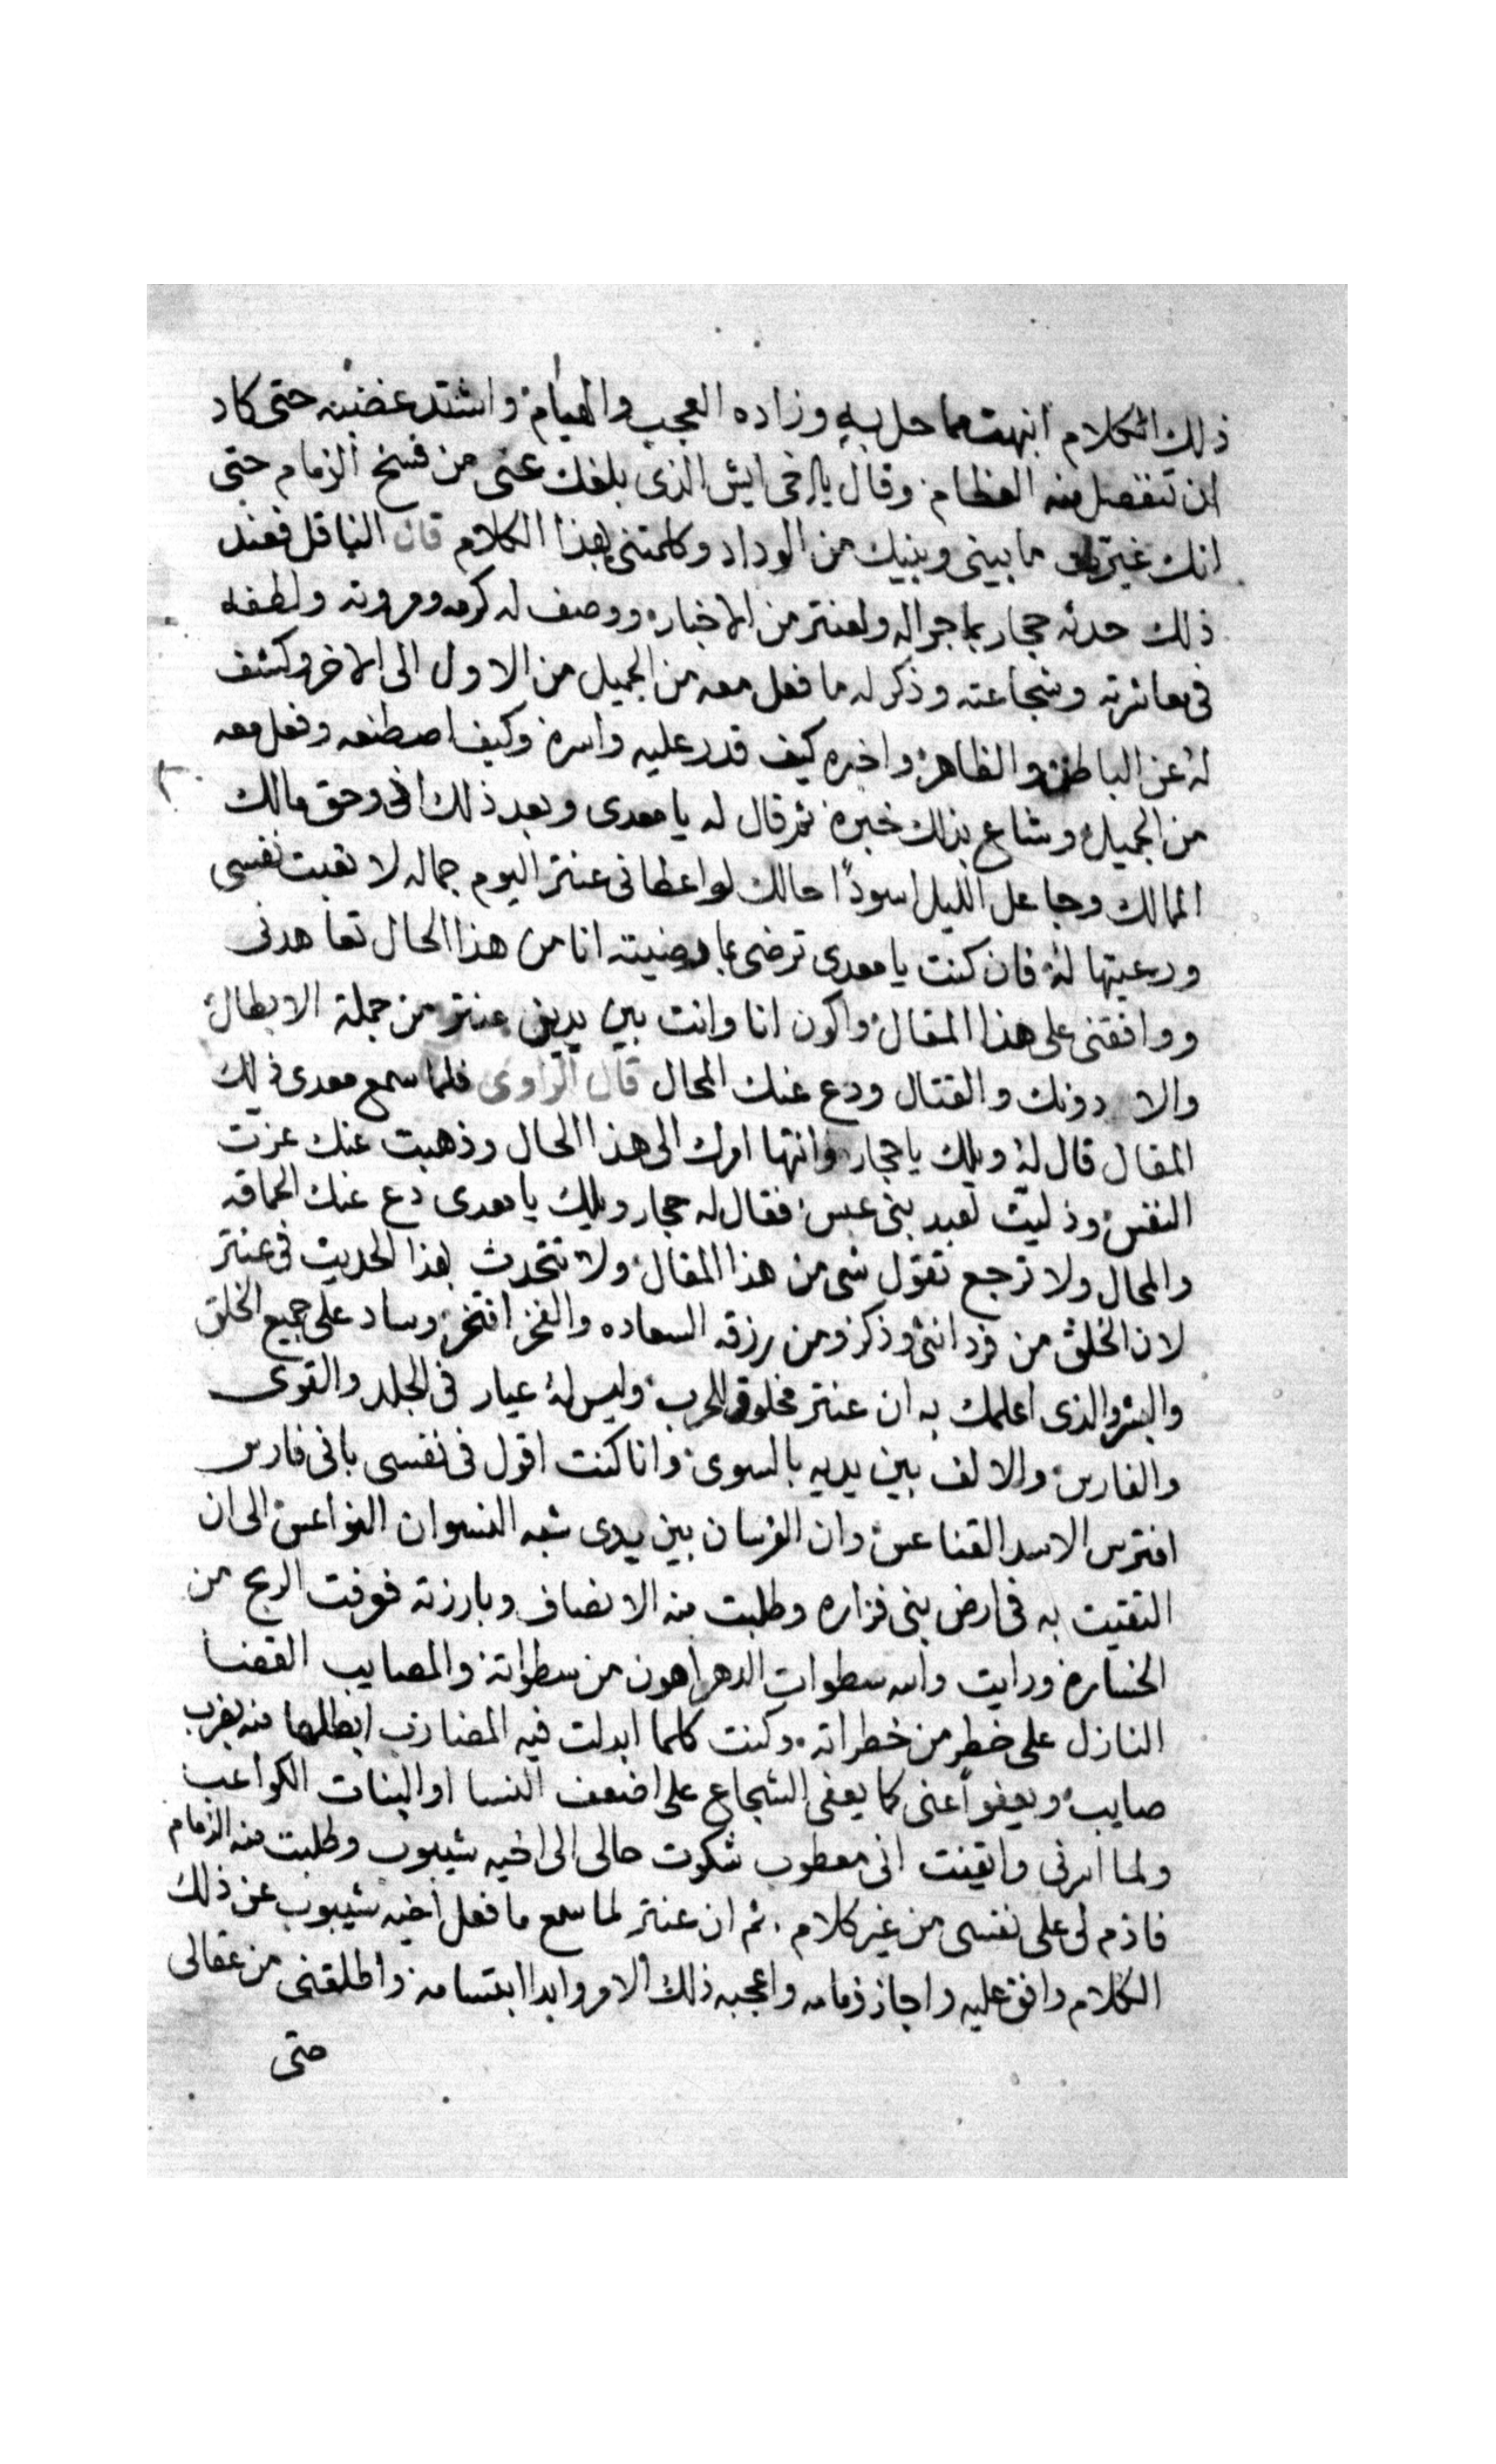 ذلك الكلام انبهت مما حل به وزاده العجب والهيام واشتد غضبه حتى كاد
ان تنفصل منه العظام وقال يا اخى ايش الذى بلغك عنى من فسخ الزمام حتى
انك غيرت ما بينى وبينك من الوداد وكلمتنى بهذا الكلام قال الناقل فعند
ذلك حدثه حجار بما جراله ولعنتر من الاخبار ووصف له كرمه ومروته ولطفه
فى معاشرته وشجاعته وذكر له ما فعل معه من الجميل من الاول الى الاخر وكشف
له عن الباطن والظاهر واخبره كيف قدر عليه واسره وكيف اصطنعه وفعل معه
من الجميل وشاع بذلك خبره ثم قال له يا معدى وبعد ذلك انى وحق مالك
الممالك وجاعل الليل اسودا حالك لو اعطانى عنتر اليوم جماله لا تعبت نفسى
ورعيتها له فان كنت يا معدى ترضى بما رضيته انا من هذا الحال تعاهدنى
ووافقنى على هذا المقال واكون انا وانت بين يدين عنتر من جملة الابطال
والا دونك والقتال ودع عنك المحال قال الراوى فلما سمع معدى ذلك
المقال قال له ويلك يا حجار وانتها امرك الى هذا الحال وذهبت عنك عزت
النفس وذليت لعبد بنى عبس فقال له حجار ويليك يا معدى دع عنك الحماقه
والمحال ولا ترجع تقول شى من هذا المقال ولا تتحدث بهذا الحديث فى عنتر
لان الخلق من فرد انثى وذكر ومن رزقه السعاده والفخر افتخر وساد على جميع الخلق
والبشر والذى اعلمك به ان عنتر مخلوق للحرب وليس له عيار فى الجلد والقوى
والفارس والالف بين يديه بالسوى وانا كنت اقول فى نفسى بانى فارس
افترس الاسد القناعس وان الفرسان بين يدى شبه النسوان النواعس الى ان
التقيت به فى ارض بنى فزاره وطلبت منه الانصاف وبارزته فوفت الربح من
الخساره ورايت والله سطوات الدهر اهون من سطواته والمصايب القضا
النازل على خطر من خطراته وكنت كلما ابدلت فيه المضارب ابطلها منه بضرب
صايب ويعفوا عنى كما يعفى الشجاع على اضعف النسا او البنات الكواعب
ولما اسرنى وايقنت انى معطوب شكوت حالى الى اخيه شيبوب وطلبت منه الزمام
فاذم لى على نفسى من غير كلام ثم ان عنتر لما سمع ما فعل اخيه شيبوب عن ذلك
الكلام وافق عليه واجاز ذمامه واعجبه ذلك الامر وابدا ابتسامه واطلقنى من عقالى
حتى